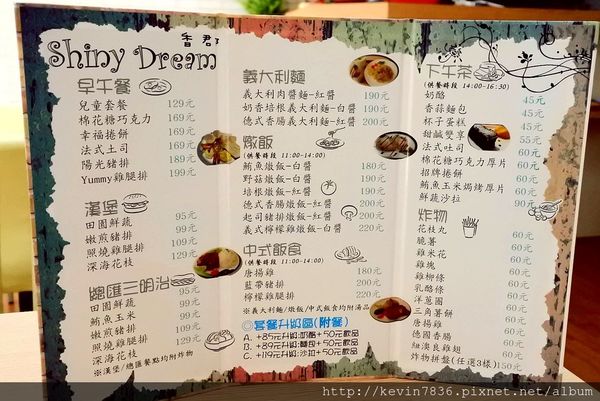 香君
Shiny Dream
早午餐
兒童套餐 129元
棉花糖巧克力 169元
幸福捲餅 169元
法式土司 189元
陽光豬排 199元
Yummy雞腿排 199元
漢堡
田園鮮蔬 95元
嫩煎豬排 99元
照燒雞腿排 109元
深海花枝 129元
總匯三明治
田園鮮蔬 95元
鮪魚玉米 99元
嫩煎豬排 109元
照燒雞腿排 109元
深海花枝 129元
※漢堡/總匯餐點均附炸物
義大利麵
義大利肉醬麵-紅醬 190元
奶香培根義大利麵-白醬 190元
德式香腸義大利麵-紅醬 200元
燉飯
(供餐時段 11:00-14:00)
鮪魚燉飯-白醬 180元
野菇燉飯-白醬 190元
培根燉飯-紅醬 190元
德式香腸燉飯-紅醬 200元
起司豬排燉飯-紅醬 200元
義式檸檬雞燉飯-白醬 220元
中式飯食
(供餐時段 11:00-14:00)
唐揚雞 180元
藍帶豬排 200元
檸檬雞腿排 220元
※義大利麵/燉飯/中式飯食均附湯品
◎套餐升級區(附餐)
A. +85元升級:奶酪+50元飲品
B. +89元升級:麵包+50元飲品
C. +119元升級:沙拉+50元飲品
下午茶
(供餐時段 14:00-16:30)
奶酪 45元
香蒜麵包 45元
杯子蛋糕 45元
甜鹹雙享 55元
法式吐司
棉花糖巧克力厚片
招牌捲餅
鮪魚玉米焗烤厚片
鮮蔬沙拉 90元
炸物
花枝丸 60元
脆薯 60元
雞米花 60元
雞塊 60元
雞柳條 60元
乳酪條 60元
洋蔥圈 60元
三角薯餅 60元
唐揚雞 60元
德國香腸 60元
紐澳良雞翅 60元
炸物拼盤(任選3樣)150元
http://kevin7836.pixnet.net/album